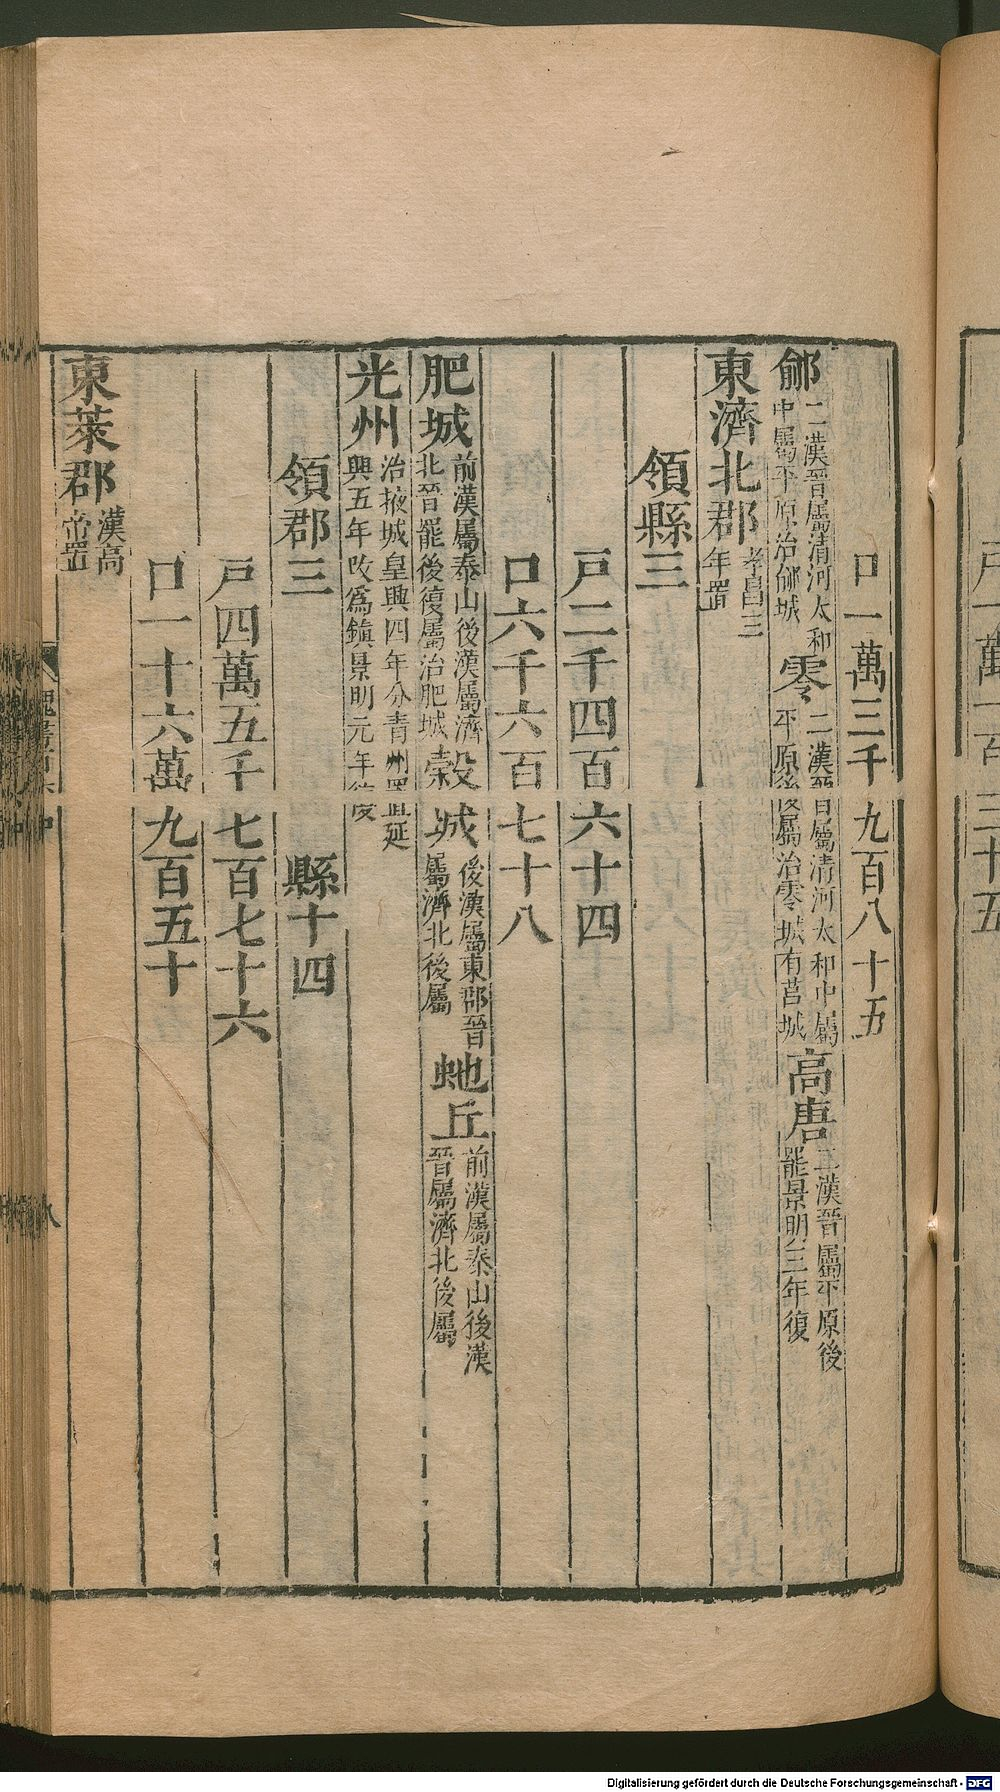 口一萬三千九百八十五
鄃二漢晉屬清河太和中屬平原治鄃城零二漢晉屬清河太和中屬平原後屬治零城有莒城高唐二漢晉屬平原後罷景明三年復
東濟北郡孝昌三年置
領縣三
戸二千四百六十四
口六千六百七十八
肥城前漢屬泰山後漢屬濟北晉罷後復屬治肥城穀城後漢屬東郡晉屬濟北後屬虵丘前漢屬泰山後漢晉屬濟北後屬
光州治掖城皇興四年分青州置延興五年改爲鎮景明元年復
領郡三縣十四
戸四萬五千七百七十六
口一十六萬九百五十
東萊郡漢高帝置
魏書百六中
八
戸一萬一百三十五
Digitalisierung gefördert durch die Deutsche Forschungsgemeinschaft - DFG